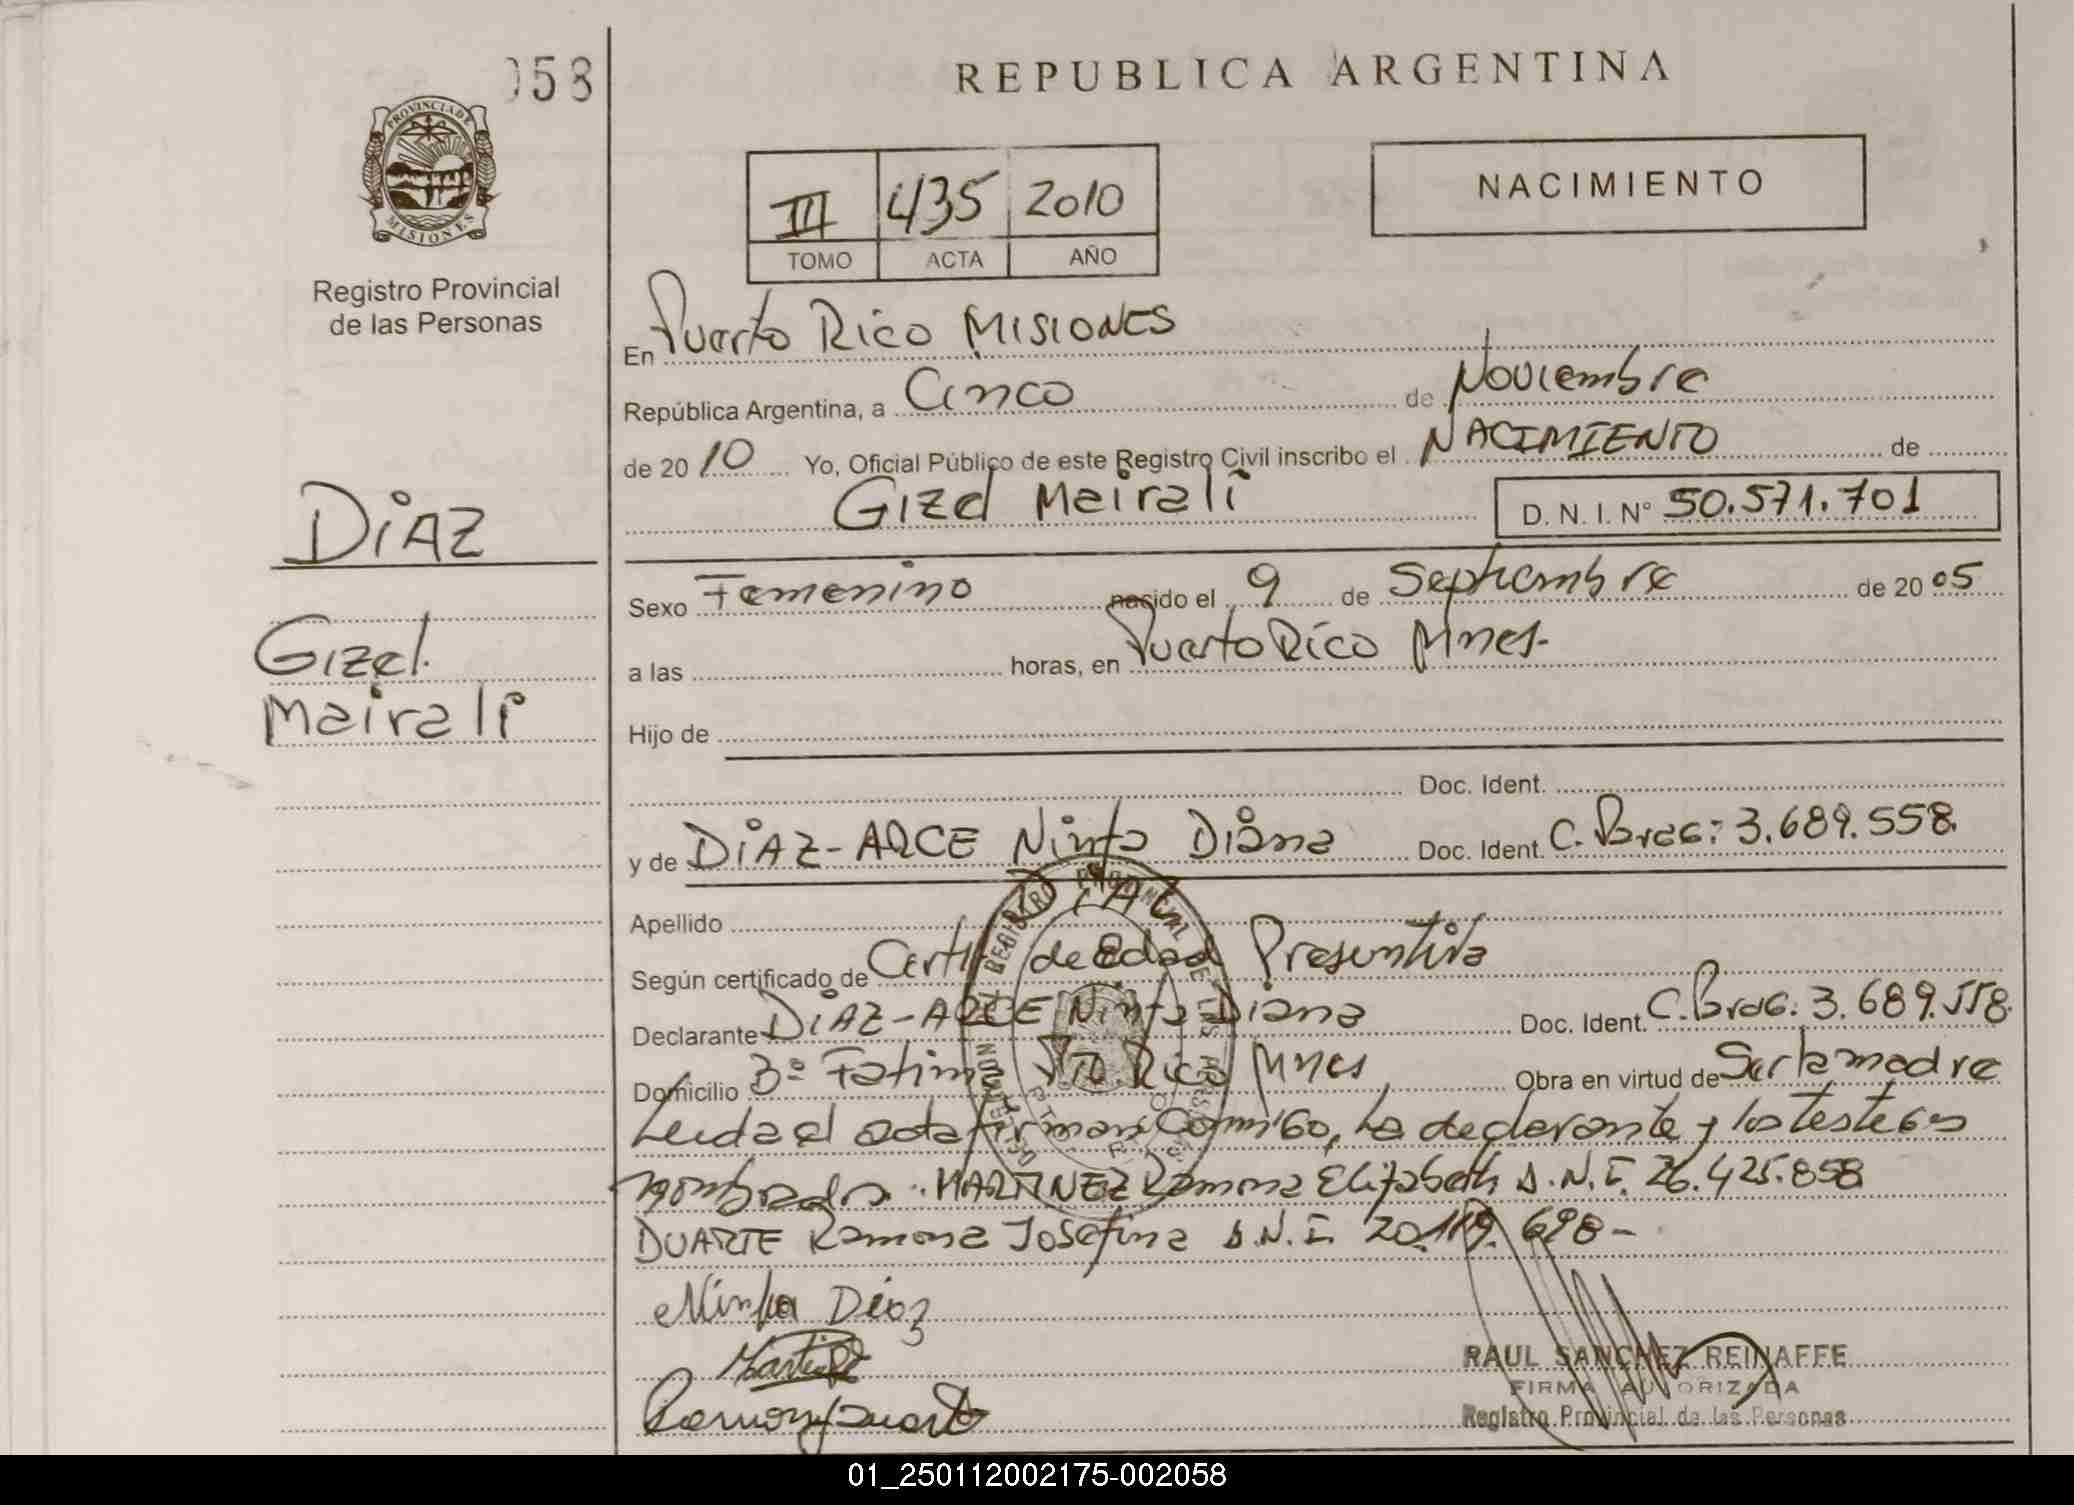 058
REPUBLICA ARGENTINA
PROVINCIA DE
MISIONES
Registro Provincial
de las Personas
III 435 2010
TOMO ACTA AÑO
NACIMIENTO
En Puerto Rico MISIONES
República Argentina, a Cinco de Noviembre
de 2010 Yo, Oficial Público de este Registro Civil inscribo el NACIMIENTO de
Gizel Mairali D. N. I. Nº 50.571.701
DiAZ
Gizel
Mairali
Sexo Femenino nacido el 9 de Septiembre de 2005
a las horas, en Puerto Rico Mnes.
Hijo de
Doc. Ident.
y de DiAZ-ARCE Ninfa Diana Doc. Ident. C. Parag: 3.689.558
Apellido DiAZ
Según certificado de Certif de Edad Presuntiva
Declarante DiAZ-ARCE Ninfa Diana Doc. Ident. C. Parag. 3.689.558
Domicilio Bº Fatima Pto. Rico Mnes, Obra en virtud de Ser la madre
Leida el acta firman conmigo, La declarante y los testigos
nombrados: MARTINEZ Ramona Elizabeth D.N.I. 26.425.858
DUARTE Ramona Josefina D.N.I. 20.119.698-
Ninfa Diaz
Martinez
Ramona Duarte
RAUL SANCHEZ REINAFFE
FIRMA AUTORIZADA
Registro Provincial de las Personas
01_250112002175-002058